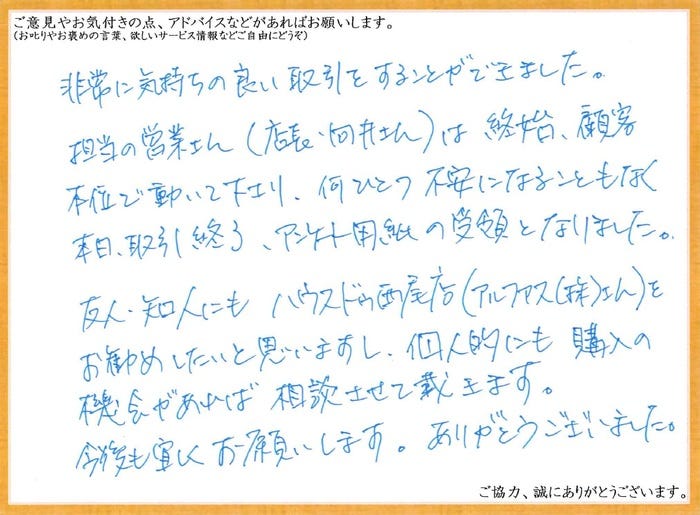 ご意見やお気付きの点、アドバイスなどがあればお願いします。
(お叱りやお褒めの言葉、欲しいサービス情報などご自由にどうぞ)
非常に気持ちの良い取引をすることができました。
担当の営業さん(店長・向井さん)は終始、顧客
本位で動いて下さり、何ひとつ不安になることもなく
本日、取引終了、アンケート用紙の受領となりました。
友人・知人にもハウスドゥ西尾店(アルファス(株)さん)を
お勧めしたいと思いますし、個人的にも購入の
機会があれば相談させて戴きます。
今後も宜しくお願いします。ありがとうございました。
ご協力、誠にありがとうございます。